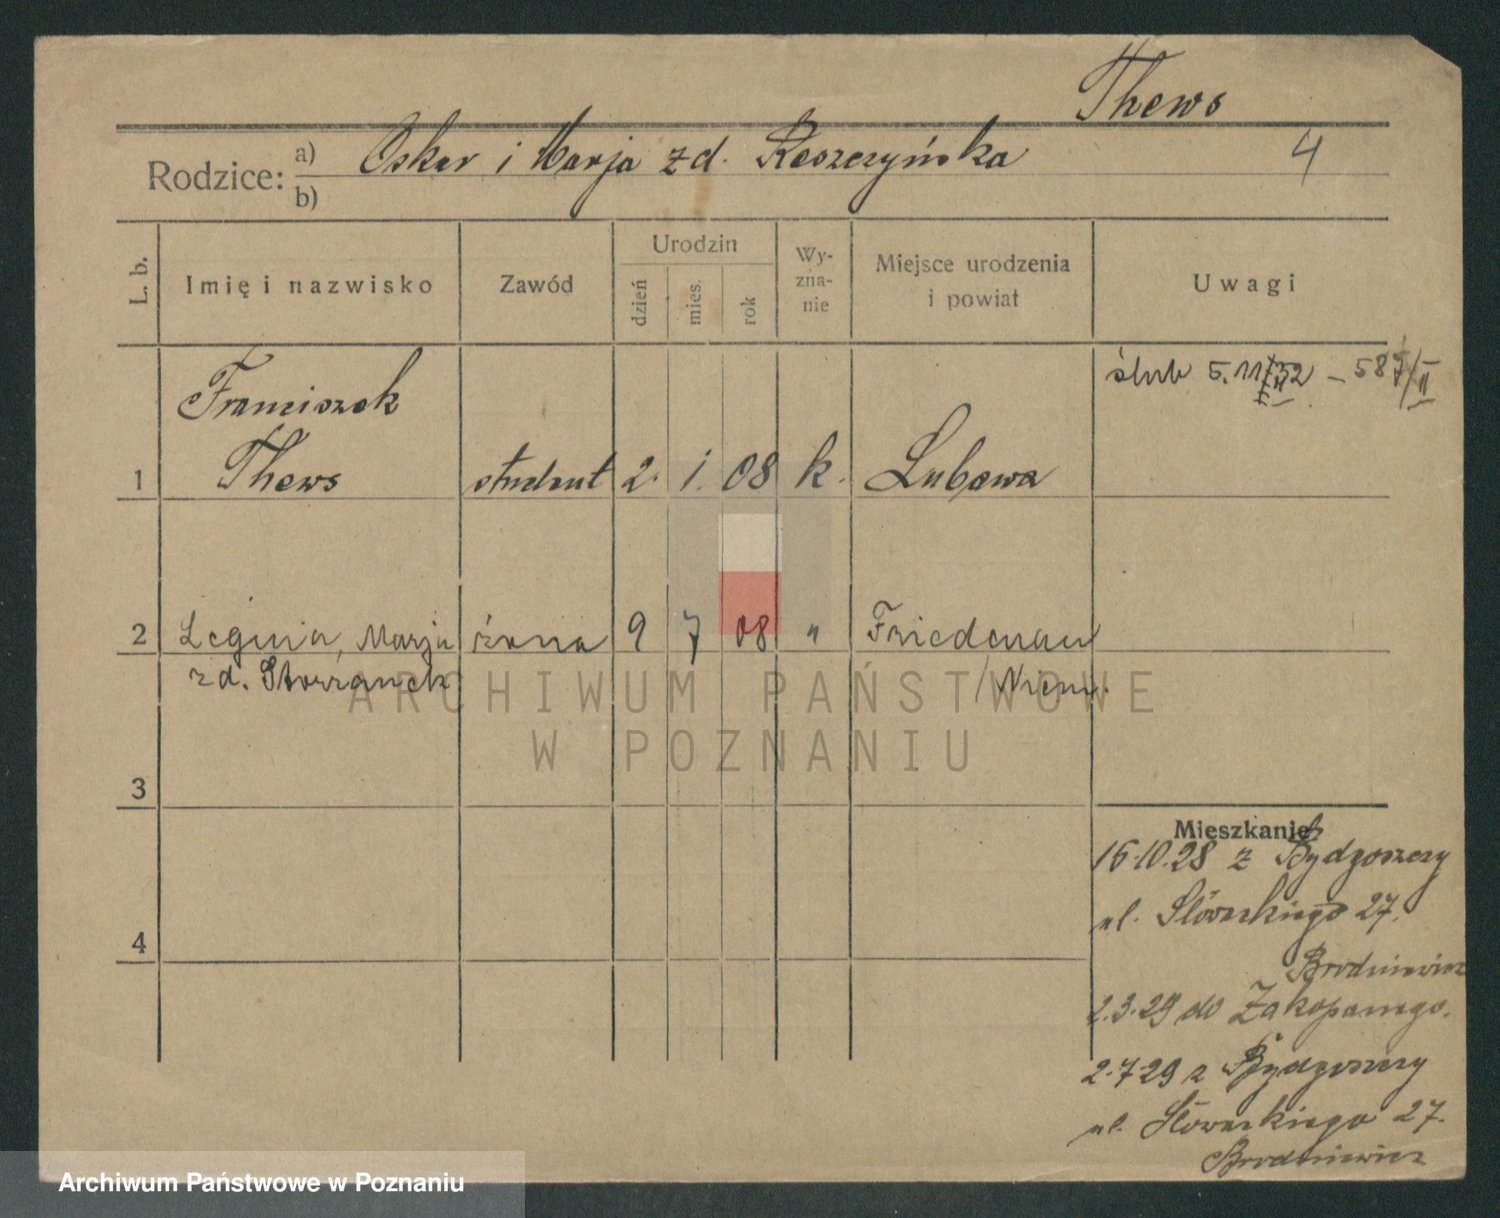 Thews
Rodzice: a) Oskar i Marja zd. Reszczyńska 4
b)
L. b.
Imię i nazwisko
Zawód
Urodzin
dzień
mies.
rok
Wy-
zna-
nie
Miejsce urodzenia
i powiat
Uwagi
ślub 5.11
Franciszek
1 Thews student 2. i. 08 k. Lubawa
2 Marja żona 9 7 08 " Friedenau
zd. / Niem.
ARCHIWUM PAŃSTWOWE
W POZNANIU
3
Mieszkanie
16.10.28 z Bydgoszczy
ul. Słowackiego 27.
4
Brodniewicz
2.3.29 do Zakopanego.
2.7.29 z Bydgoszczy
ul. Słowackiego 27.
Brodniewicz
Archiwum Państwowe w Poznaniu